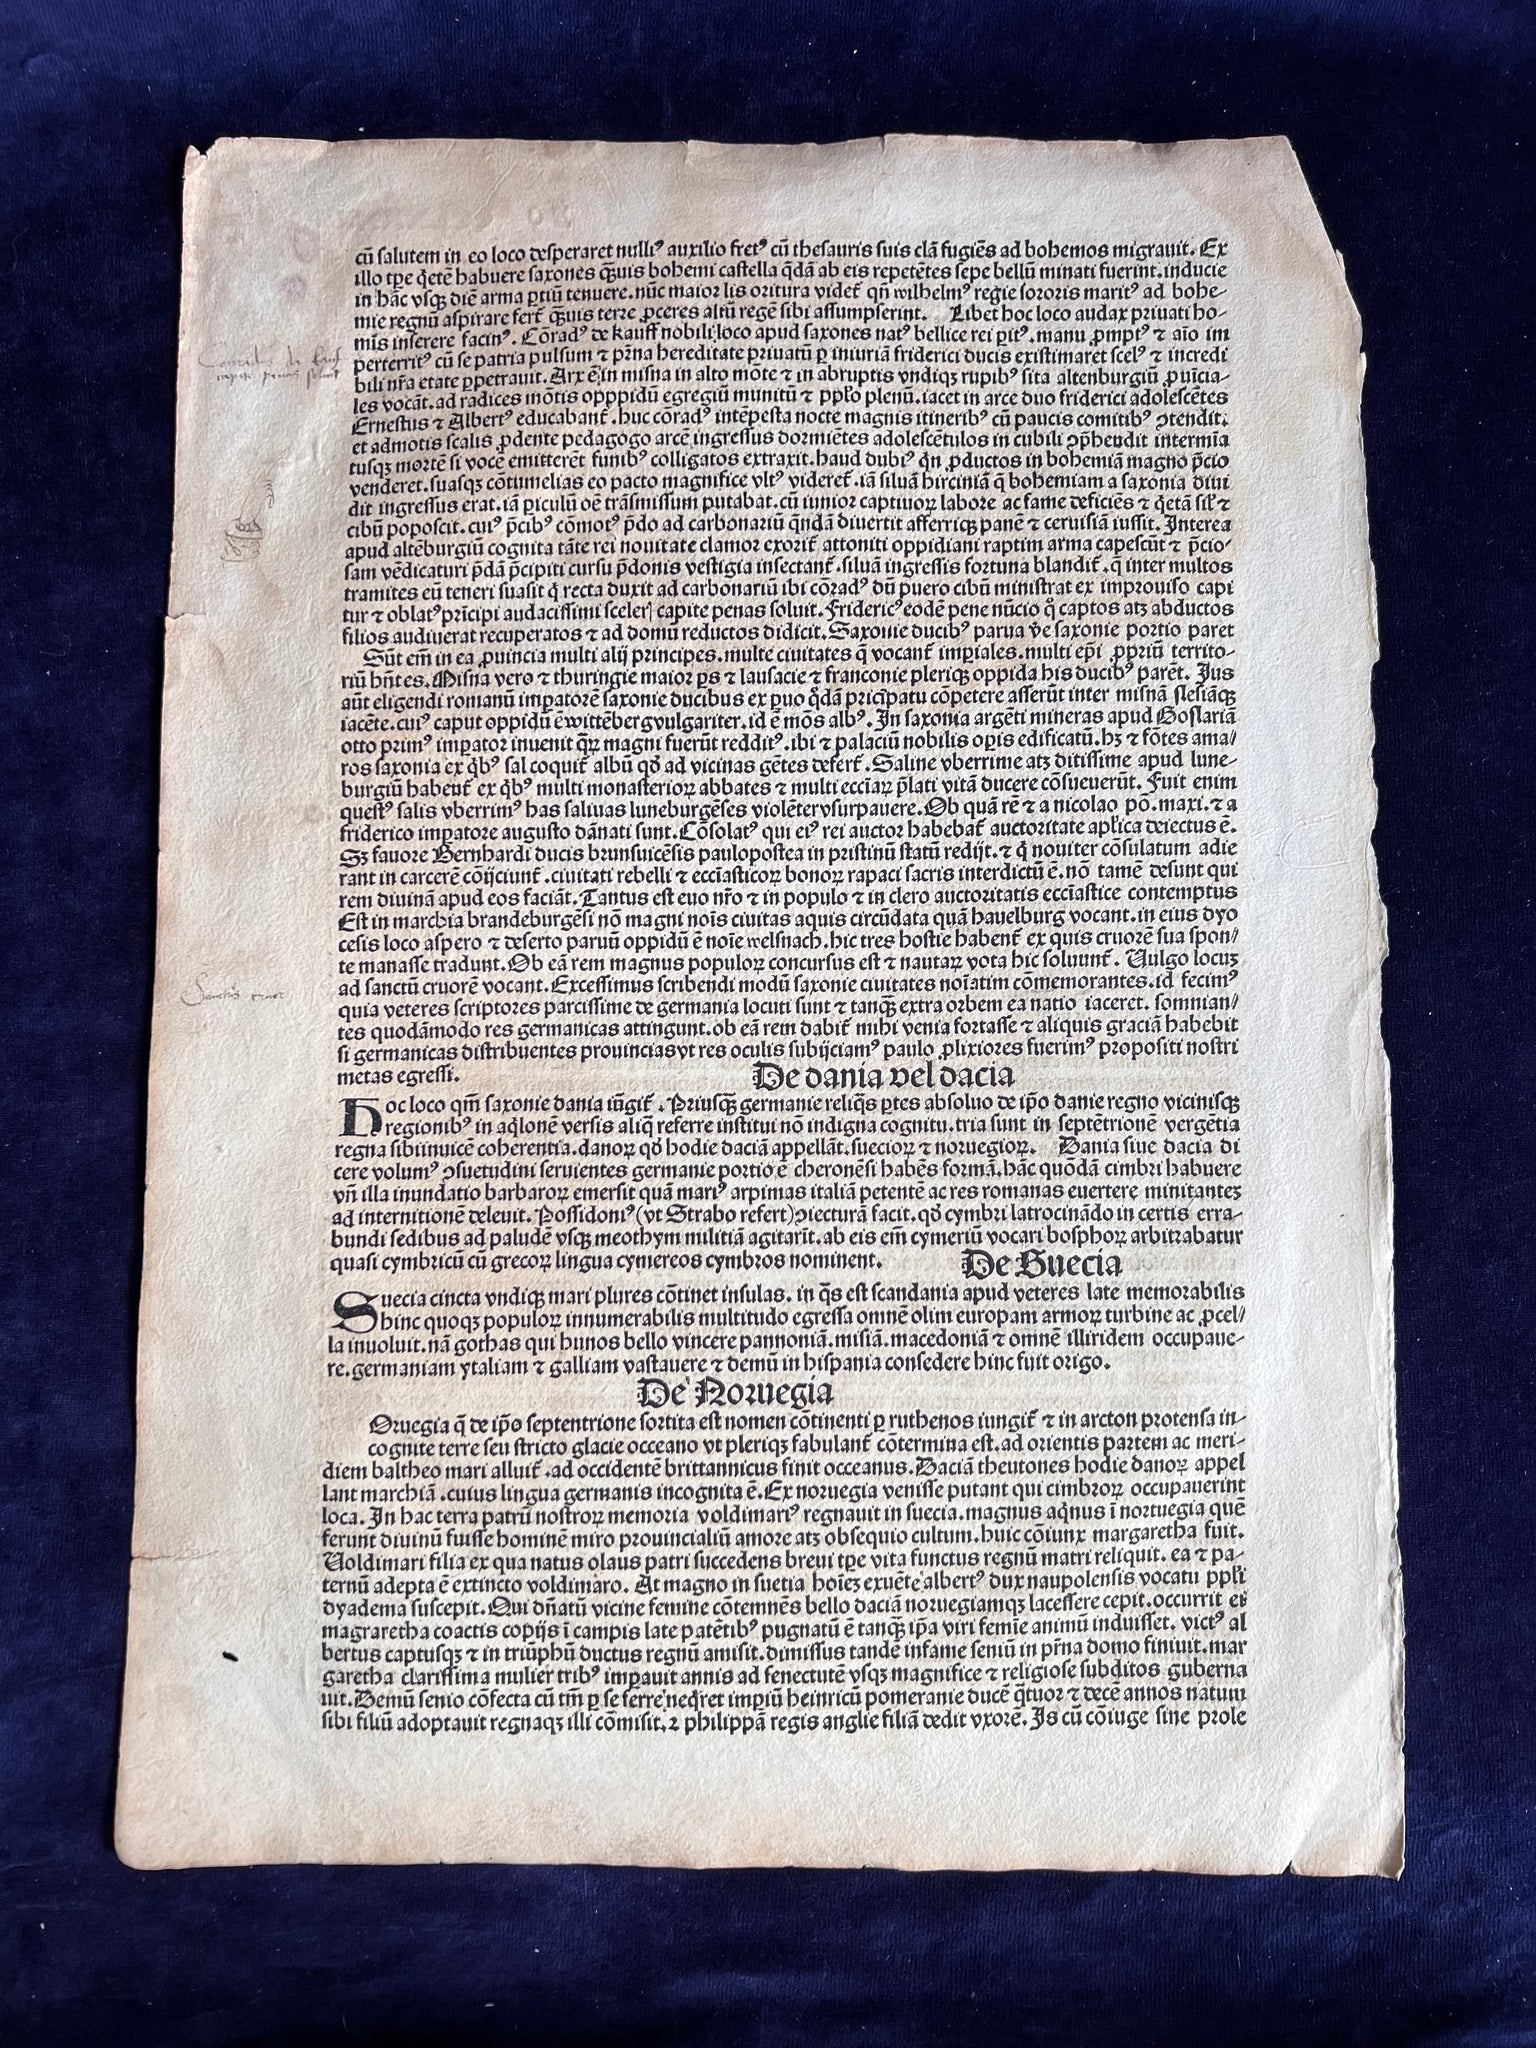 cū salutem in eo loco desperaret nulliꝰ auxilio fretꝰ cū thesauris suis clā fugiēs ad bohemos migrauit. Ex
illo tpe q̇tē habuere saxones q̄uis bohemi castella q̄dā ab eis repetētes sepe bellū minati fuerint. inducie
in hāc vsqꝫ diē arma ꝑtiū tenuere. nūc maior lis oritura videt̄ qn̄ wilhelmꝰ regie sororis maritꝰ ad bohe-
mie regnū aspirare fert̄ q̄uis terre ꝓceres altū regē sibi assumpserint. Libet hoc loco audax priuati ho-
mīs inserere facinꝰ. Cōradꝰ de kauff nobili loco apud saxones natꝰ bellice rei ꝑitꝰ. manu ꝓmptꝰ ⁊ aīo im
perterritꝰ cū se patria pulsum ⁊ pr̄na hereditate priuatū ꝑ iniuriā friderici ducis existimaret scelꝰ ⁊ incredi
bili nr̄a etate ꝑpetrauit. Arx ē in misna in alto mōte ⁊ in abruptis vndiqꝫ rupibꝰ sita altenburgiū ꝓuīcia-
les vocāt. ad radices mōtis oppidū egregiū munitū ⁊ ppl̄o plenū. iacet in arce duo friderici adolescētes
Ernestus ⁊ Albertꝰ educabant̄. huc cōradꝰ intēpesta nocte magnis itineribꝰ cū paucis comitibꝰ ꝯtendit.
et admotis scalis ꝓdente pedagogo arcē ingressus dormiētes adolescētulos in cubili ꝯp̄hendit intermia
tusqꝫ mortē si vocē emitterēt funibꝰ colligatos extraxit. haud dubiꝰ qn̄ ꝓductos in bohemiā magno p̄cio
venderet. suasqꝫ cōtumelias eo pacto magnifice vltꝰ videret̄. iā siluā hirciniā q̄ bohemiam a saxonia diui
dit ingressus erat. iā ꝑiculū oē trāsmissum putabat. cū iunior captiuoꝝ labore ac fame deficiēs ⁊ q̇tē sil̄ ⁊
cibū poposcit. cuiꝰ p̄cibꝰ cōmotꝰ p̄do ad carbonariū q̄ndā diuertit afferriqꝫ panē ⁊ ceruisiā iussit. Interea
apud altēburgiū cognita tāte rei nouitate clamor exorit̄ attoniti oppidiani raptim arma capescūt ⁊ p̄cio-
sam vēdicaturi p̄dā p̄cipiti cursu p̄donis vestigia insectant̄. siluā ingressis fortuna blandit̄. q inter multos
tramites eū teneri suasit q̇ recta duxit ad carbonariū ibi cōradꝰ dū puero cibū ministrat ex improuiso capi
tur ⁊ oblatꝰ prīcipi audacissimi sceleri capite penas soluit. Fridericꝰ eodē pene nūcio q̊ captos atꝫ abductos
filios audiuerat recuperatos ⁊ ad domū reductos didicit. Saxonie ducibꝰ parua v̄e saxonie portio paret
Sūt em̄ in ea ꝓuincia multi alij principes. multe ciuitates q̄ vocant̄ imꝑiales. multi ep̄i ꝓpriū territo-
riū hn̄tes. Misna vero ⁊ thuringie maior ꝑs ⁊ lausacie ⁊ franconie pleriqꝫ oppida his ducibꝰ parēt. Jus
aūt eligendi romanū imꝑatorē saxonie ducibus ex ꝑuo q̊dā pricipatu cōpetere asserūt inter misnā slesiāqꝫ
iacēte. cuiꝰ caput oppidū ē wittēberg vulgariter. id ē mōs albꝰ. In saxonia argēti mineras apud Goslariā
otto primꝰ imꝑator inuenit q̄ꝝ magni fuerūt redditꝰ. ibi ⁊ palaciū nobilis oꝑis edificatū. hꝫ ⁊ fōtes ama-
ros saxonia ex q̇bꝰ sal coquit̄ albū qd̄ ad vicinas gētes defert̄. Saline vberrime atꝫ ditissime apud lune-
burgiū habent̄ ex q̇bꝰ multi monasterioꝝ abbates ⁊ multi eccl̄iaꝝ p̄lati vitā ducere cōsueuerūt. Fuit enim
questꝰ salis vberrimꝰ has salinas luneburgēses violēter vsurpauere. Ob quā rē ⁊ a nicolao pō. maxi. ⁊ a
friderico imꝑatore augusto dānati sunt. Cōsolatꝰ qui eiꝰ rei auctor habebat̄ auctoritate apl̄ica deiectus ē.
Sꝫ fauore Bernhardi ducis brunsuicēsis paulopostea in pristinū statū redijt. ⁊ q̇ nouiter cōsulatum adie
rant in carcerē cōijciunt̄. ciuitati rebelli ⁊ eccl̄iasticoꝝ bonoꝝ rapaci sacris interdictū ē. nō tamē desunt qui
rem diuinā apud eos faciāt. Tantus est euo nr̄o ⁊ in populo ⁊ in clero auctoritatis eccl̄iastice contemptus
Est in marchia brandeburgēsi nō magni noīs ciuitas aquis circūdata quā hauelburg vocant. in eius dyo
cesis loco aspero ⁊ deserto paruū oppidū ē noīe welsnach. hic tres hostie habent̄ ex quis cruorē sua spon-
te manasse tradunt. Ob eā rem magnus populoꝝ concursus est ⁊ nautaꝝ vota hic soluunt̄. Uulgo locuꝫ
ad sanctū cruorē vocant. Excessimus scribendi modū saxonie ciuitates noīatim cōmemorantes. id fecimꝰ
quia veteres scriptores parcissime de germania locuti sunt ⁊ tanqꝫ extra orbem ea natio iaceret. somnian-
tes quodāmodo res germanicas attingunt. ob eā rem dabit̄ mihi venia fortasse ⁊ aliquis graciā habebit
si germanicas distribuentes prouincias vt res oculis subijciamꝰ paulo ꝓlixiores fuerimꝰ propositi nostri
metas egressi.
De dania vel dacia
Hoc loco qm̄ saxonie dania iūgit̄. Priusqꝫ germanie reliq̄s ꝑtes absoluo de ip̄o danie regno vicinisqꝫ
regionibꝰ in aq̇lonē versis aliq̄ referre institui nō indigna cognitu. tria sunt in septētrionē vergētia
regna sibiinuicē coherentia. danoꝝ qd̄ hodie daciā appellāt. suecioꝝ ⁊ noruegioꝝ. Dania siue dacia di
cere volumꝰ ꝯsuetudini seruientes germanie portio ē cheronēsi habēs formā. hāc quōdā cimbri habuere
vn̄ illa inundatio barbaroꝝ emersit quā mariꝰ arpimas italiā petentē ac res romanas euertere minitantez
ad internitionē deleuit. Possidoniꝰ (vt Strabo refert) ꝯiecturā facit. qd̄ cymbri latrocinādo in certis erra-
bundi sedibus ad paludē vsqꝫ meothym militiā agitarīt. ab eis em̄ cymeriū vocari bosphoꝝ arbitrabatur
quasi cymbricū cū grecoꝝ lingua cymereos cymbros nominent.
De Suecia
Suecia cincta vndiqꝫ mari plures cōtinet insulas. in q̄s est scandania apud veteres late memorabilis
hinc quoqꝫ populoꝝ innumerabilis multitudo egressa omnē olim europam armoꝝ turbine ac ꝓcel-
la inuoluit. nā gothas qui hunos bello vincere pannoniā. misiā. macedoniā ⁊ omnē illiridem occupaue-
re. germaniam ytaliam ⁊ galliam vastauere ⁊ demū in hispania consedere hinc fuit origo.
De Noruegia
Oruegia q̄ de ip̄o septentrione sortita est nomen cōtinenti ꝑ ruthenos iungit̄ ⁊ in arcton protensa in-
cognite terre seu stricto glacie occeano vt pleriqꝫ fabulant̄ cōtermina est. ad orientis partem ac meri-
diem baltheo mari alluit̄. ad occidentē brittannicus finit occeanus. Daciā theutones hodie danoꝝ appel
lant marchiā. cuius lingua germanis incognita ē. Ex noruegia venisse putant qui cimbroꝝ occupauerint
loca. In hac terra patrū nostroꝝ memoria voldimariꝰ regnauit in suecia. magnus aq̇nus ī nortuegia quē
ferunt diuinū fuisse hominē miro prouincialiū amore atꝫ obsequio cultum. huic cōiunx margaretha fuit.
Uoldimari filia ex qua natus olaus patri succedens breui tꝑe vita functus regnū matri reliquit. ea ⁊ pa-
ternū adepta ē extincto voldimaro. At magno in suetia hoīeꝫ exuēte albertꝰ dux naupolensis vocatu ppl̄i
dyadema suscepit. Qui dn̄atū vicine femine cōtemnēs bello daciā noruegiamqꝫ lacessere cepit. occurrit ei
magraretha coactis copijs ī campis late patētibꝰ pugnatū ē tanqꝫ ip̄a viri femīe animū induisset. victꝰ al
bertus captusqꝫ ⁊ in triūphū ductus regnū amisit. dimissus tandē infame seniū in pr̄na domo finiuit. mar
garetha clarissima mulier tribꝰ imꝑauit annis ad senectutē vsqꝫ magnifice ⁊ religiose subditos guberna
uit. Demū senio cōfecta cū tm̄ ꝑ se ferre neq̇ret imꝑiū heinricū pomeranie ducē q̄tuor ⁊ decē annos natum
sibi filiū adoptauit regnaqꝫ illi cōmisit. ⁊ philippā regis anglie filiā dedit vxorē. Is cū cōiuge sine prole